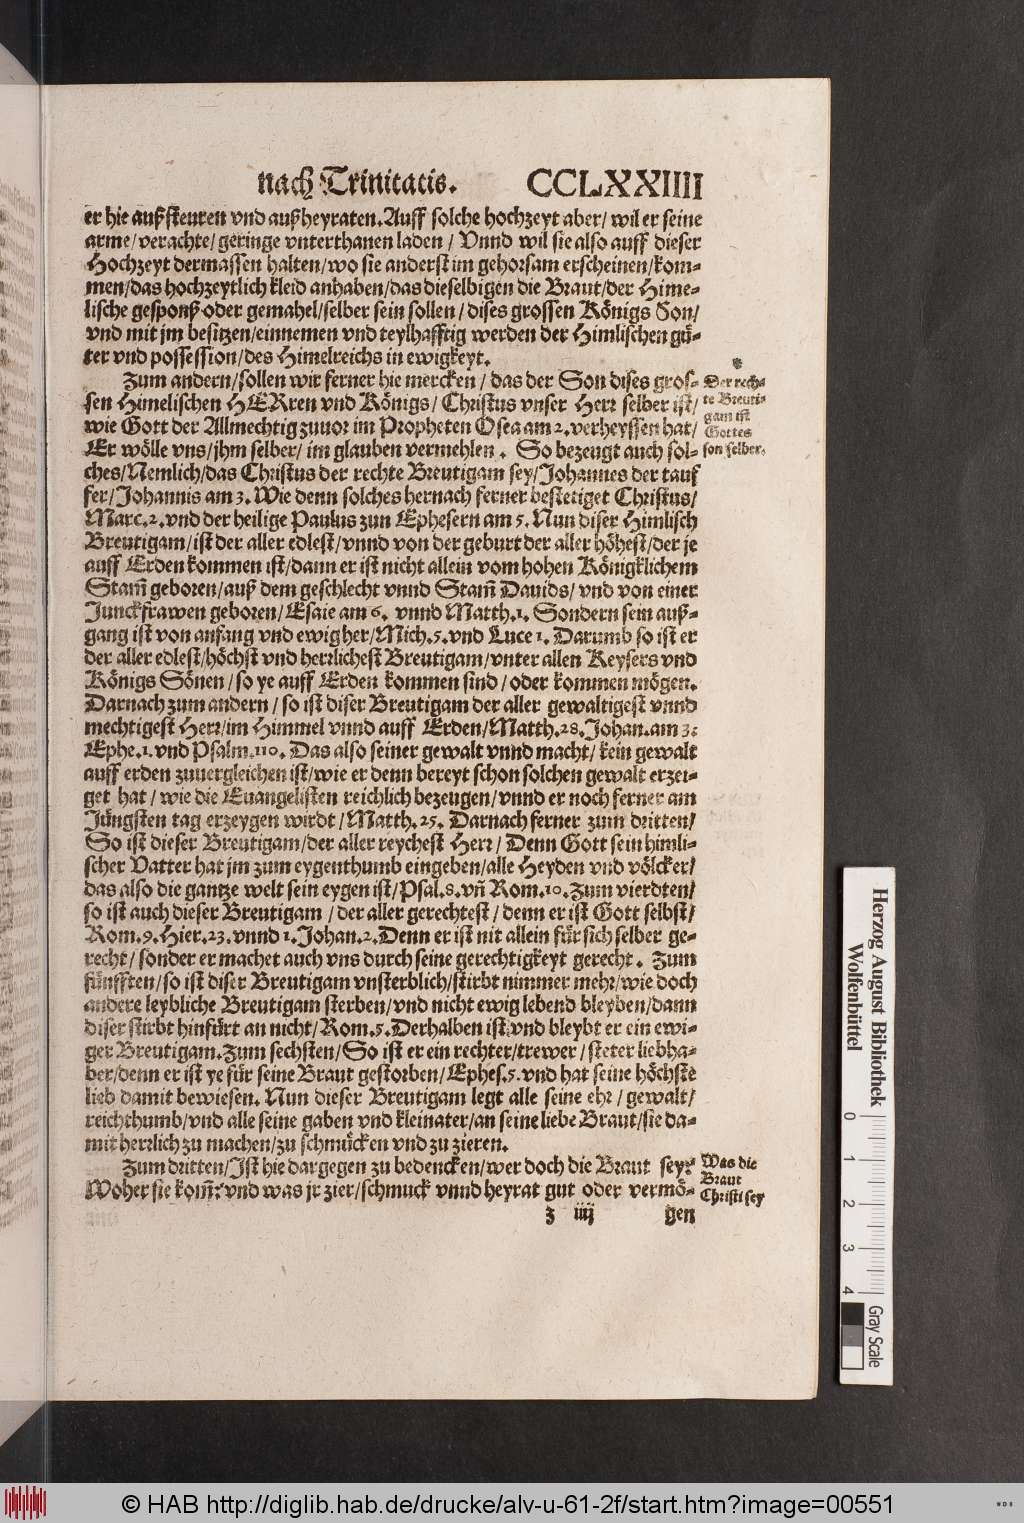 nach Trinitatis. CCLXXIIII
er hie außsteuren vnd außheyraten. Auff solche hochzeyt aber/ wil er seine
arme/ verachte/ geringe vnterthanen laden / Vnnd wil sie also auff dieser
Hochzeyt dermassen halten/ wo sie anderst im gehorsam erscheinen/ kom-
men/ das hochzeytlich kleid anhaben/ das dieselbigen die Braut/ der Hime-
lische gesponß oder gemahel/ selber sein sollen / dises grossen Königs Son/
vnd mit jm besitzen/ einnemen vnd teylhafftig werden der Himlischen gü-
ter vnd possession/ des Himelreichs in ewigkeyt.
Zum andern/ sollen wir ferner hie mercken / das der Son dises gros-
sen Himelischen HERren vnd Königs/ Christus vnser Herr selber ist/
wie Gott der Allmechtig zuuor im Propheten Osea am 2. verheyssen hat/
Er wölle vns/ jhm selber/ im glauben vermehlen. So bezeugt auch sol-
ches/ Nemlich/ das Christus der rechte Breutigam sey/ Johannes der tauf
fer/ Johannis am 3. Wie denn solches hernach ferner bestetiget Christus/
Marc. 2. vnd der heilige Paulus zun Ephesern am 5. Nun diser Himlisch
Breutigam/ ist der aller edlest/ vnnd von der geburt der aller höhest/ der je
auff Erden kommen ist/ dann er ist nicht allein vom hohen Königklichem
Stam̃ geboren/ auß dem geschlecht vnnd Stam̃ Dauids/ vnd von einer
Junckfrawen geboren/ Esaie am 6. vnnd Matth. 1. Sondern sein auß-
gang ist von anfang vnd ewig her/ Mich. 5. vnd Luce 1. Darumb so ist er
der aller edlest/ höchst vnd herrlichest Breutigam/ vnter allen Keysers vnd
Königs Sönen/ so ye auff Erden kommen sind/ oder kommen mögen.
Darnach zum andern / so ist diser Breutigam der aller gewaltigest vnnd
mechtigest Herr/ im Himmel vnnd auff Erden/ Matth. 28. Johan. am 3:
Ephe. 1. vnd Psalm. 110. Das also seiner gewalt vnnd macht/ kein gewalt
auff erden zuuergleichen ist/ wie er denn bereyt schon solchen gewalt erzei-
get hat / wie die Euangelisten reichlich bezeugen/ vnnd er noch ferner am
Jüngsten tag erzeygen wirdt/ Matth. 25. Darnach ferner zum dritten/
So ist dieser Breutigam/ der aller reychest Herr/ Denn Gott sein himli-
scher Vatter hat jm zum eygenthumb eingeben/ alle Heyden vnd völcker/
das also die gantze welt sein eygen ist/ Psal. 8. vñ Rom. 10. Zum vierdten/
so ist auch dieser Breutigam / der aller gerechtest / denn er ist Gott selbst/
Rom. 9. Hier. 23. vnnd 1. Johan. 2. Denn er ist nit allein für sich selber ge-
recht/ sonder er machet auch vns durch seine gerechtigkeyt gerecht. Zum
fünfften/ so ist diser Breutigam vnsterblich/ stirbt nimmer mehr/ wie doch
andere leybliche Breutigam sterben/ vnd nicht ewig lebend bleyben/ dann
diser stirbt hinfürt an nicht/ Rom. 5. Derhalben ist vnd bleybt er ein ewi-
ger Breutigam. Zum sechsten/ So ist er ein rechter/ trewer / steter liebha-
ber/ denn er ist ye für seine Braut gestorben/ Ephes. 5. vnd hat seine höchste
lieb damit bewiesen. Nun dieser Breutigam legt alle seine ehr / gewalt/
reichthumb/ vnd alle seine gaben vnd kleinater/ an seine liebe Braut/ sie da-
mit herrlich zu machen/ zu schmücken vnd zu zieren.
Zum dritten/ Jst hie dargegen zu bedencken/ wer doch die Braut sey?
Woher sie kom̃? vnd was jr zier/ schmuck vnnd heyrat gut oder vermö-
z iiij gen
Der rech-
te Breuti-
gam ist
Gottes
son selber.
Was die
Braut
Christi sey
Herzog August Bibliothek
Wolfenbüttel
0 1 2 3 4
Gray Scale
© HAB http://diglib.hab.de/drucke/alv-u-61-2f/start.htm?image=00551